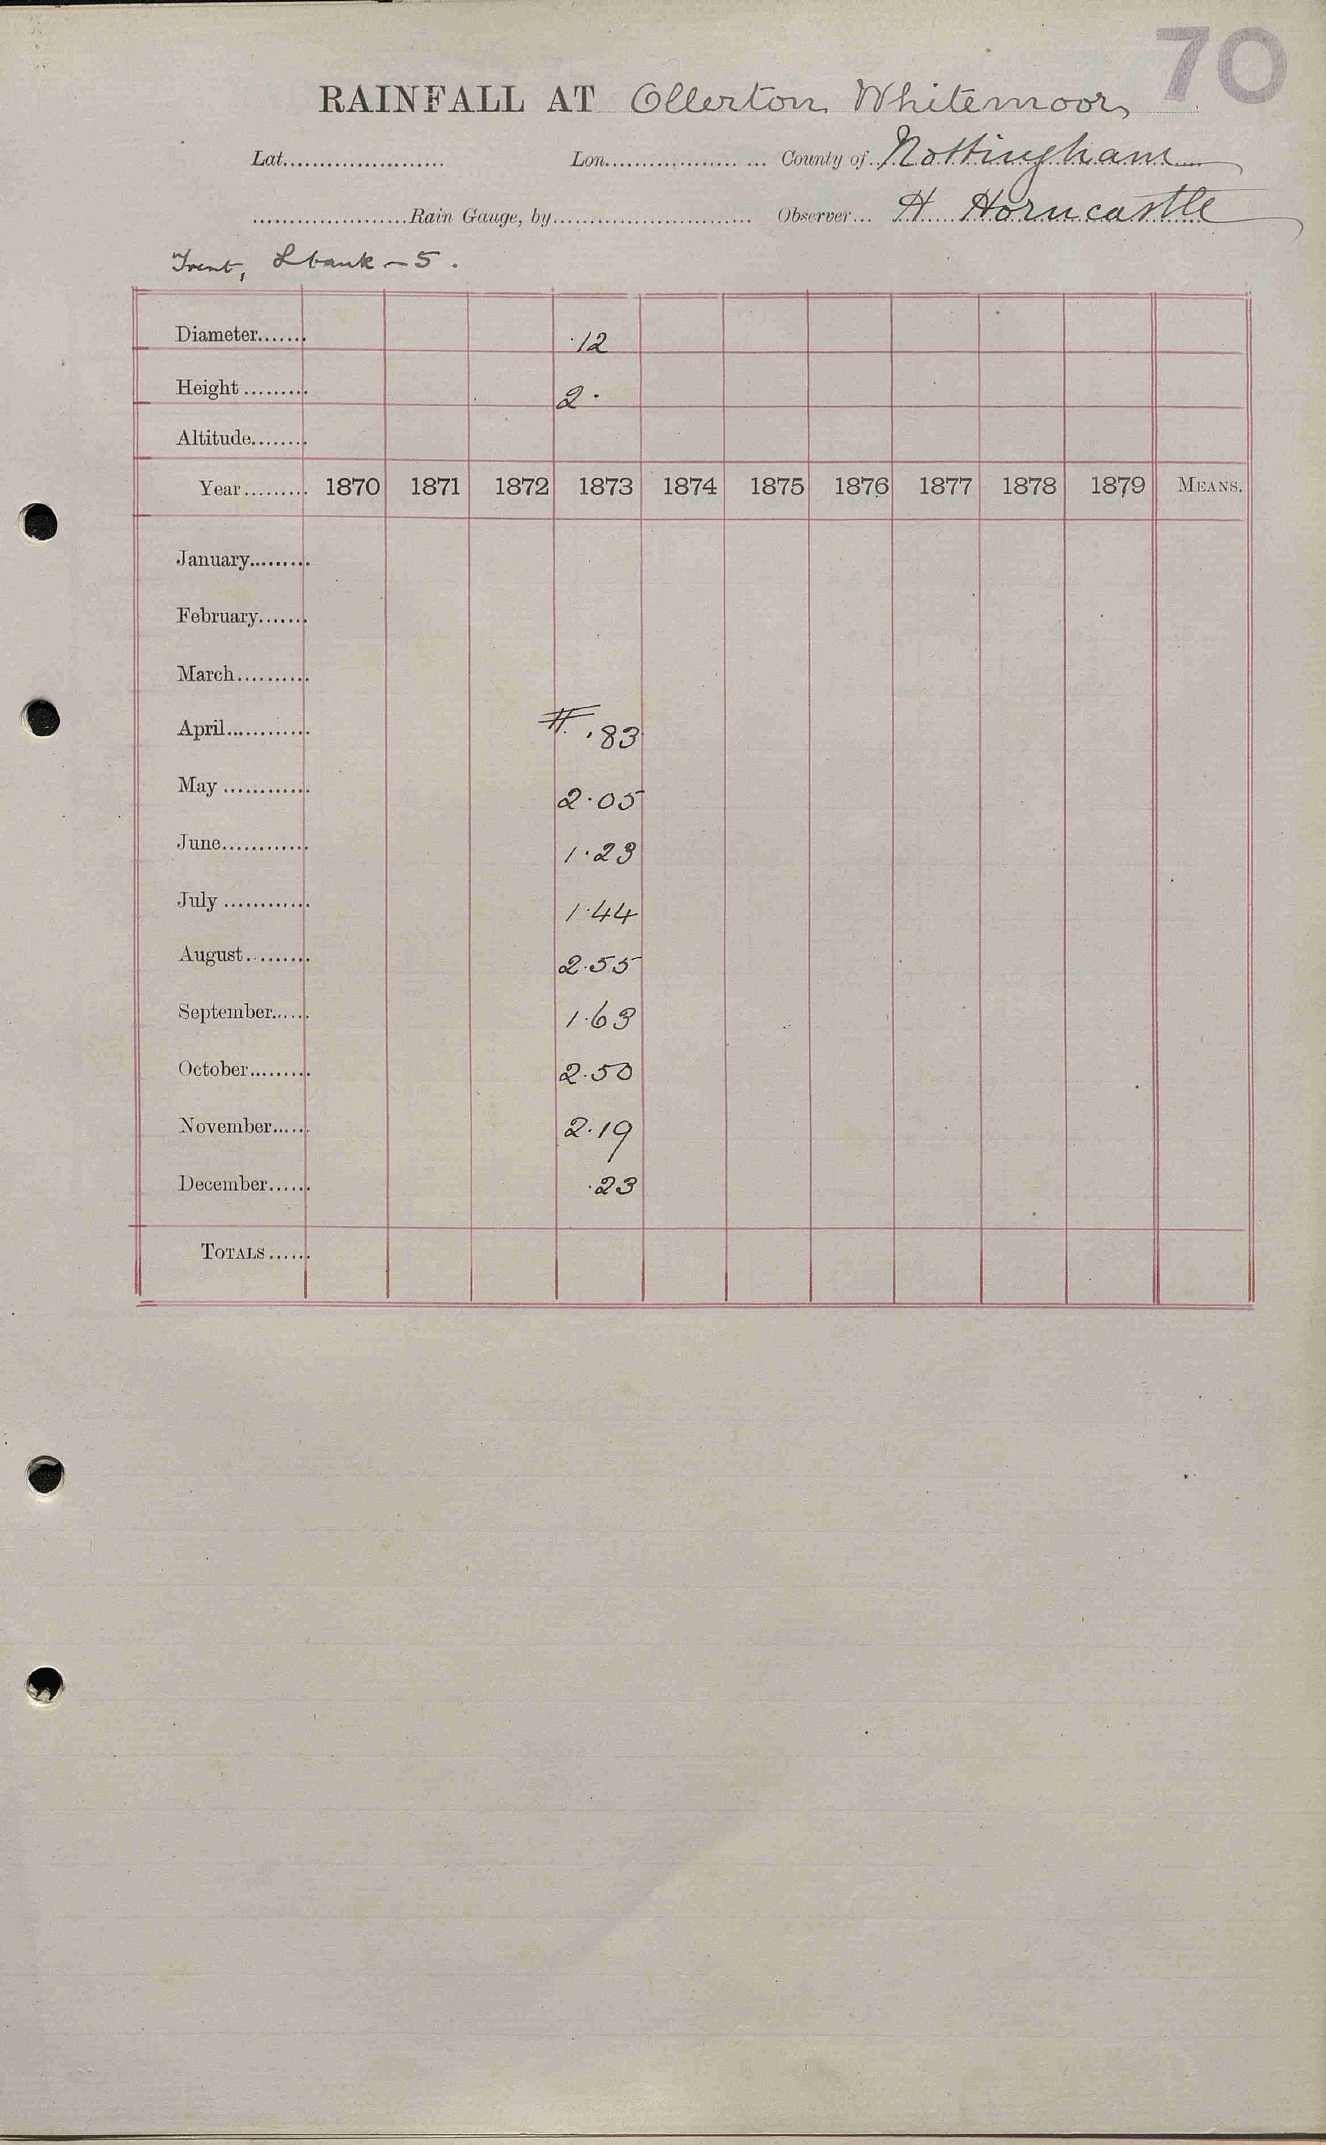 70
RAINFALL AT Ollerton Whitemoor
Lat...................... Lon...................... County of Nottingham
......................Rain Gauge, by............................ Observer... H Horncastle
Trent, L bank - 5.
Diameter....... ·12
Height ......... 2·
Altitude........
Year......... 1870 1871 1872 1873 1874 1875 1876 1877 1878 1879 MEANS.
January.........
February.......
March..........
April............ # ·83
May ............ 2·05
June............ 1·23
July ............ 1·44
August......... 2·55
September...... 1·63
October......... 2·50
November...... 2·19
December...... ·23
TOTALS......